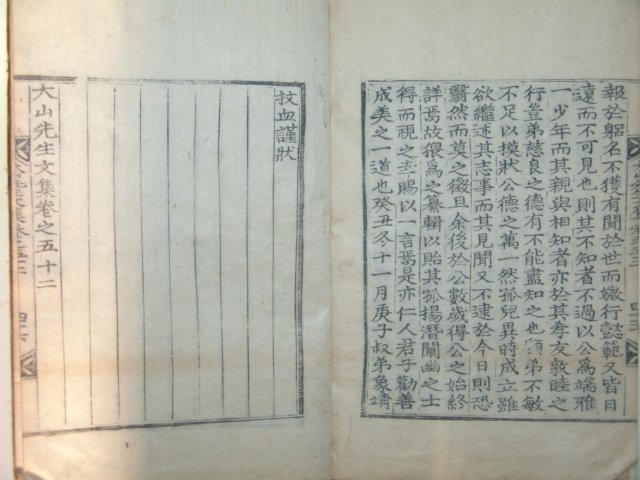 報於躬名不獲有聞於世而媺行懿範又皆日
遠而不可見也則其不知者不過以公爲端雅
一少年而其親與相知者亦於其孝友敦睦之
行豈弟慈良之德有不能盡知之也顧弟不敏
不足以摸狀公德之萬一然孤兒異時成立雖
欲繼述其志事而其見聞又不逮於今日則恐
翳然而莫之徵且余後於公數歲得公之始終
詳焉故猥爲之纂輯以貽其孤揚潛闡幽之士
得而視之幸賜以一言焉是亦仁人君子勸善
成美之一道也癸丑冬十一月庚子叔弟象靖
抆血謹狀
大山先生文集卷之五十二